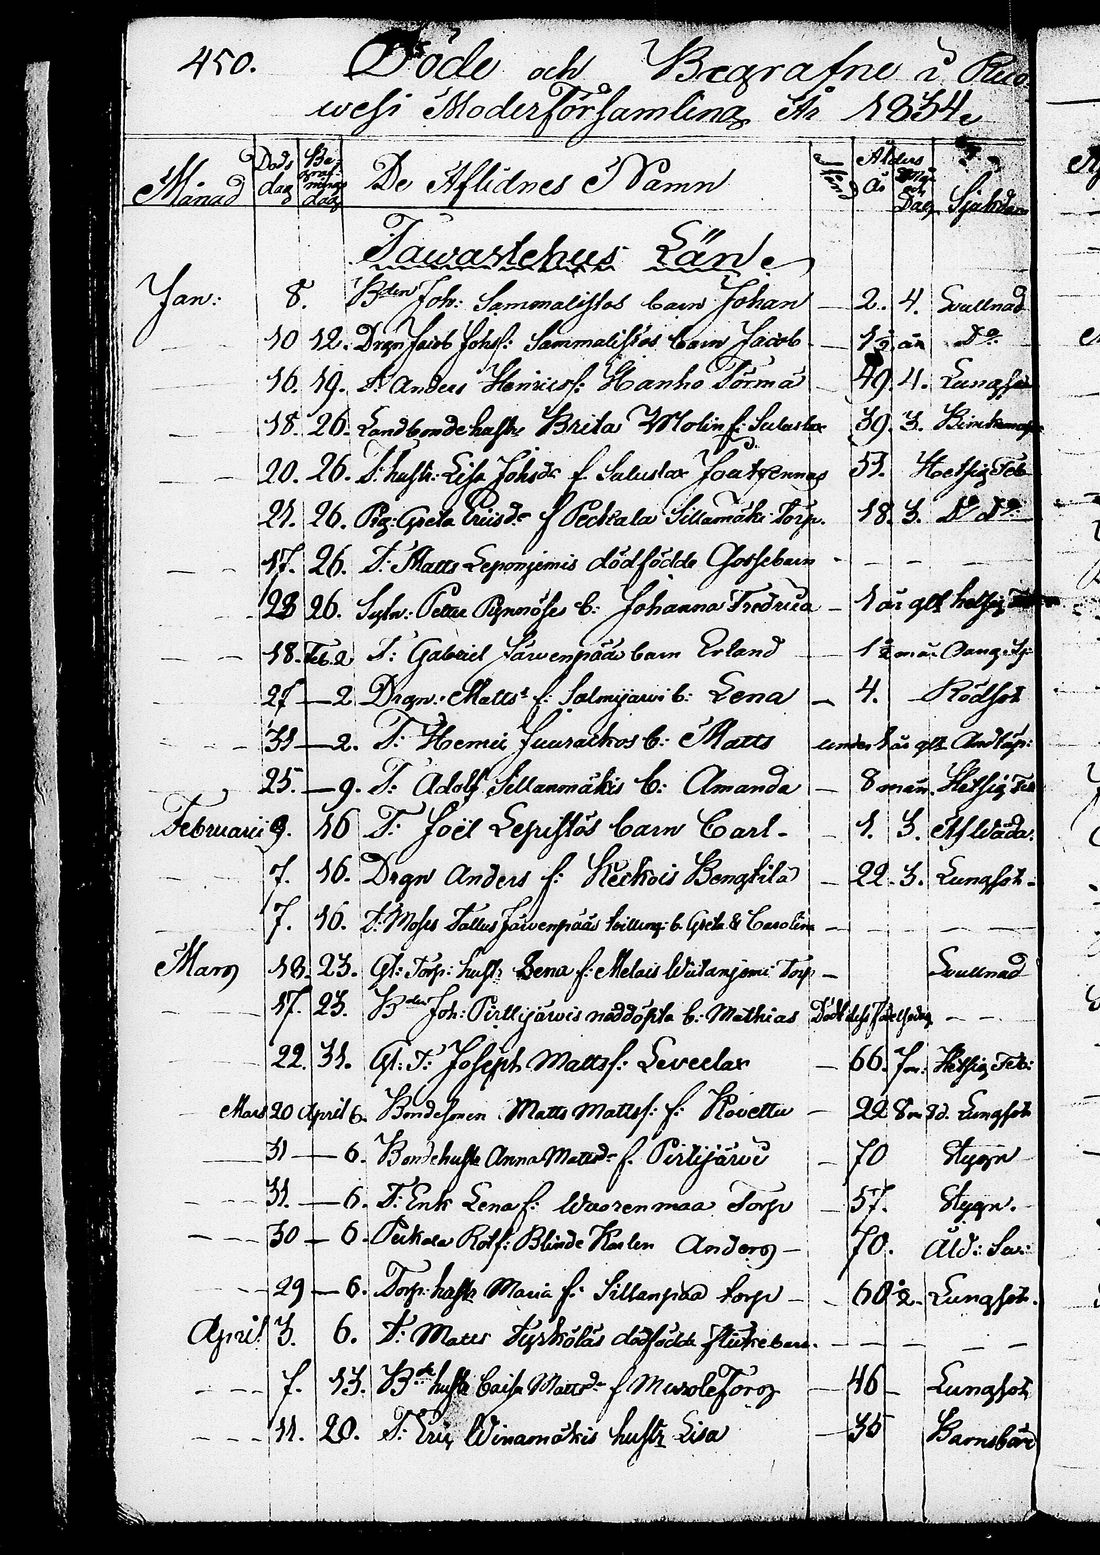 450. Döde och Begrafne i Ruo
wesi Moderförsamling År 1834.
Månad Döds dag Begrafnings dag De Aflidnes Namn Stånd Ålders År Mån. och Dag Sjukdom
Tawastehus Län
Jan: 8. Bden Joh: Sammalistos barn Johan — 2. 4. Svullnad
10 12. Drgn Jacob Johsf: Sammalistos barn Jacob 1 Do
16. 19. Anders Henricsf: Hanho Torma 49. 4. Lungsot
18. 26. Landbonde hustr Brita Molin f: 39. 3.
20. 26. T: hustr: Lisa Johsdr f. 53. Hetsig Feb
21. 26. Pig: Greta Ericsdr f Peckala Sillamäki Torp. 18. 3. Do Do
17. 26. T: Matts Leponjemis dödfödde Gossebarn
23 26. Petter b: Johanna Fredrica — 1 år glt hetsig
18. Feb. 2 T: Gabriel Järwenpääs barn Erland
27 — 2 Drgn: Matts f: Salmijärwi b: Lena — 4. Rödsot
31 — 2. T: Henric b: Matts under 1 år glt Andtäp:
25. — 9. T: Adolf Sillanmäkis b: Amanda 8 mån. Hetsig Feb
Februarii 9. 16 T: Joël Lepistös barn Carl — 1. 3. Af Wåda.
7. 16. Drgn Anders f: Keckois Bengtilä — 22. 3. Lungsot.
7. 16. T: Moses Tallus Järwenpääs twilling: b. Greta & Carolina
Mars 18. 23. Gl: Torp: hustr Lena f: Melais Wiitanjemi Torp — Svullnad
17. 23. Bden Joh: Pirttijärwis nöddöpta b: Mathias
22. 31. Gl: T: Joseph Mattsf: — 66. Hetsig Feb:
Mars 20 April 6. Bondesonen Matts Mattsf: f: Kovettu — 22 8m 8d. Lungsot
31 — 6. Bondehustr Anna Mattsdr f. Pirtijärwi — 70 Stygn
31. — 6. T: Enk Lena f: Wuorenmaa Torp — 57. Stygn.
30 — 6. Peckala Rotf: Blinde Karlen Anders — 70. Åld:
29 — 6. Torp: hustr Maria f: Sillanpää torp — 60 2. Lungsot.
April 3. 6. T: Matts Tyrköläs dödfödde flickebarn.
7. 13. Bde hustr Caisa Mattsdr f Muroletorp — 46 — Lungsot
11. 20. T: Eric Winamäkis hustr Lisa — 35 Barnsbörd